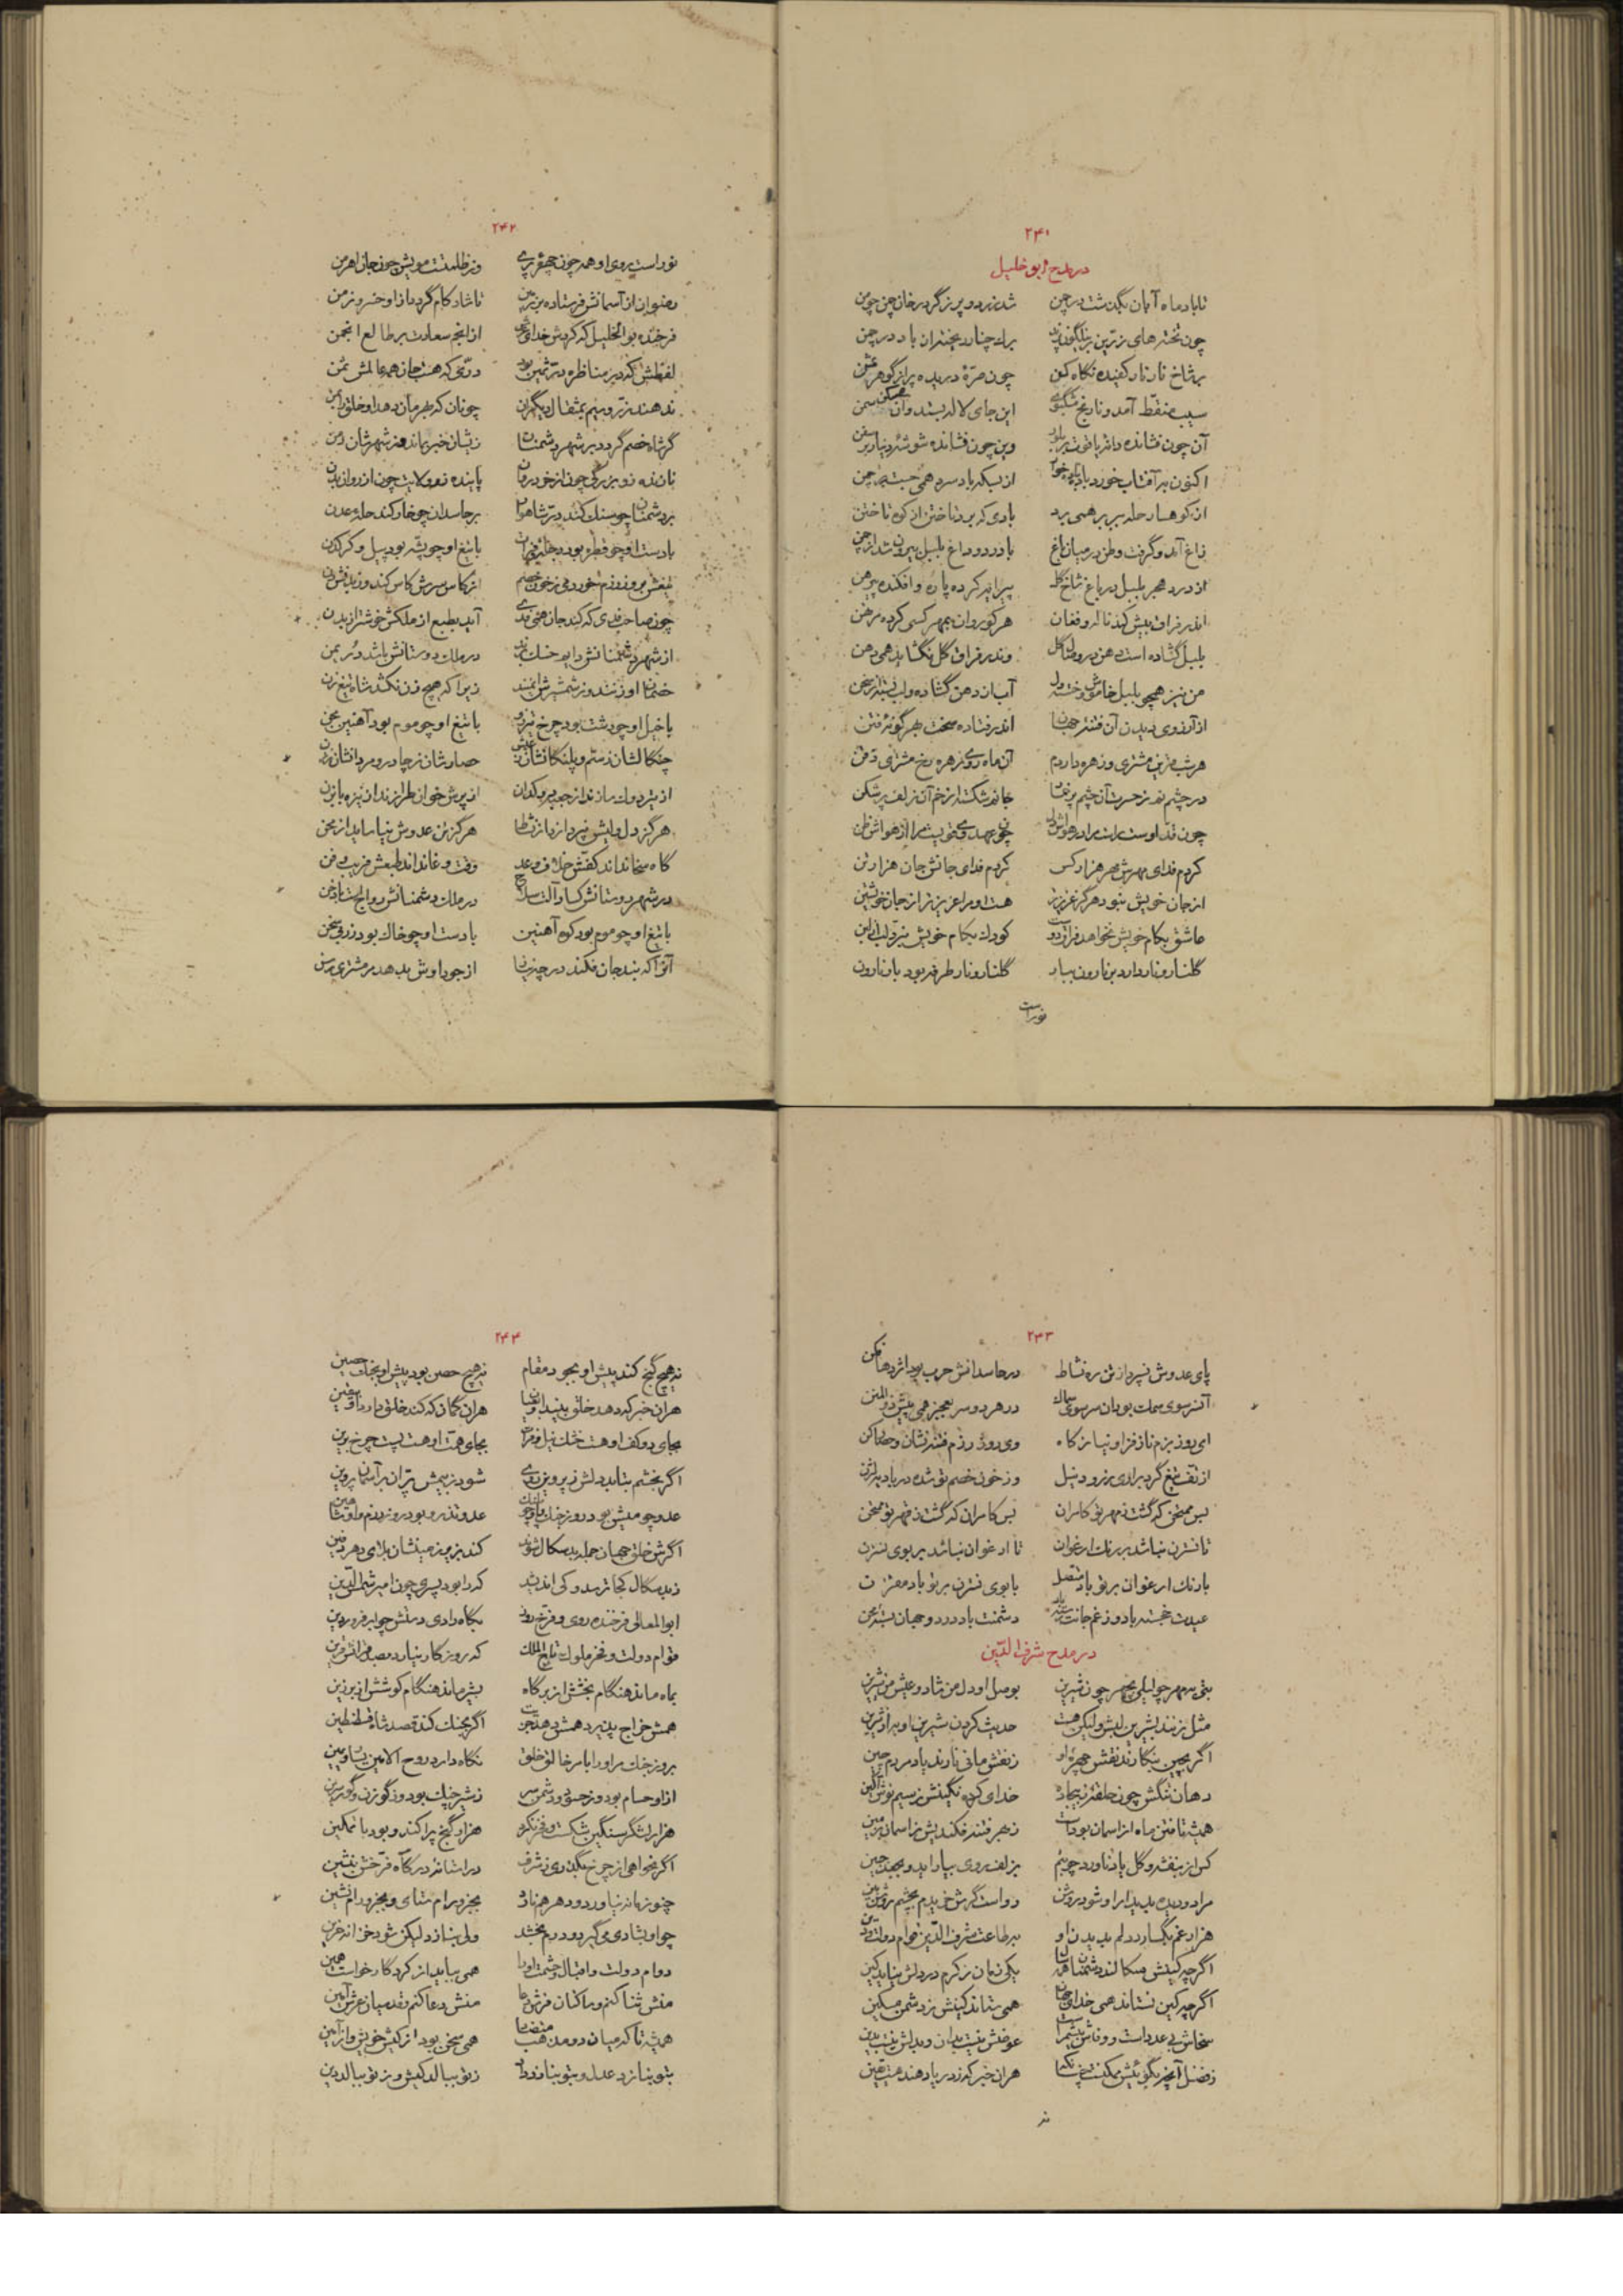 ۲۴۱
در مدح ابو خلیل
تا باد ماه آبان بگذشت در چمن شد زرد و پر ز گرد رخان چمن چو من
چون تخته های زرین بر نیلگون پرند برگ چنار ریخته از باد در چمن
بر شاخ نار نار کفیده نگاه کن چون صرّهٔ دریده پر از گوهر
سیب منقّط آمد و نارنج این جای لاله بستد و آن سمن
آن چون فشانده دانهٔ یاقوت بر وین چون فشانده شوشهٔ دینار بر
اکنون بر آفتاب خورد باده از بسکه باد سرد همی جست
از کوهسار حله بیر برهمی برد بادی که برد تاختن از کوه تا ختن
زاغ آمد و گرفت وطن در میان باغ با درد و داغ بلبل بیرون شد از چمن
از درد هجر بلبل در باغ شاخ گل پیراهن کرده پاره و افکنده پیرهن
اندر فراق بیش کند ناله و فغان هر کو روان بمهر کسی کرده مرتهن
بلبل گشاده است دهن در وصال گل وندر فراق گل نگشاید همی دهن
من نیز همچو بلبل خاموش و خسته دل آب از دهن گشاده و لب بسته از سخن
از آرزوی دیدن آن فتنهٔ جهان اندر فتاده سخت بهر گونهٔ فتن
هر شب قرین مشتری و زهره داردم آن ماه روی زهره رخ مشتری ذقن
در چشم نم ز حسرت آن چشم پر جانم شکسته از خم آن زلف پر شکن
چون قد اوست راست مرا در هواش دل
کردم فدای مهرش مهر هزار کس کردم فدای جانش جان هزار تن
از جان خویش نبود هرگز عزیزتر هست او مرا عزیزتر از جان خویشتن
عاشق بکام خویش نخواهد فراق دوست کودک بکام خویش نبرد لب از لبن
گلنار و نار دارد بر نارون ببار گلنار و نار طرفه بود بار نارون
نور است
۲۴۲
نور است روی او همه چون چهر پری وز ظلمت است مویش چون جان اهرمن
رضوان از آسمانش فرستاده بر زمین تا شاد کام گردد از او خسرو زمن
فرخنده بوالخلیل که کردش خدای از انجم سعادت بر طالع انجمن
لفظش که مناظره درّ ثمین بود درّی که هست جان همه عالمش ثمن
ندهند زرّ و سیم بمثقال دیگران چونان که او بمن دهد او خلق را بمن
گر شاه خصم گردد بر شهر دشمنان زیشان خبر نماند وز شهرشان
نازنده زو بزرگی چون از خرد روان پاینده زو ولایت چون از روان بدن
بر دشمنان چو سنگ کند درّ شاهوار بر حاسدان چو خار کند حلهٔ عدن
با دست او چو قطره بود با تیغ او چو پشّه بود پیل و کرگدن
تیغش بروز رزم خورد می ز خون خصم از کاسهٔ سرش کاس کند وز
چون صاحب فدی که کند جان همی فدی آید بطبع از ملکش خوشتر از بدن
از شهر دشمنانش در ملک دوستانش باشد درّ یمن
خصمان او زنند و ز شمشیرش ایمنند زیرا که هیچ زن نکشد شاه تیغ زن
با خیل او چو دشت بود چرخ تیز رو با تیغ او چو موم بود آهنین مجن
چنگالشان ز ستم و پلنگانشان حصارشان ز چادر و مردانشان زن
هرگز دل ولیش نپردازد از نشاط هرگز تن عدوش نیاساید از محن
گاه سخا نداند کفّش خلاف وعد وقت وغا نداند طبعش فریب و فن
در شهر دوستانش کساد آلت سلاح در ملک دشمنانش رواج است با کفن
با تیغ او چو موم بود کوه آهنین با دست او چو خاک بود زر و سخن
آنرا که بند جان فکند در چه نیاز از جود اوش بدهد بر مشتری رسن
۲۴۳
پای عدوش نسپرد از تن ره نشاط در حاسدانش حرب بود اژدها فکن
آن سوی سمک بود آن سر سوی سماک در هر دو سر بعجز همی پیش
ای روز بزم ناز فزا و نیاز کاه وی روز رزم فتنه نشان و حصار کن
از تف تیغ گرد براری ز رود نیل وز خون خصم تو شده دریا
بس ممتحن که گشت ز مهر تو کامران بس کامران که گشت ز قهر تو ممتحن
تا نسترن نباشد بر رنگ ارغوان تا ارغوان نباشد بر بوی نسترن
با رنگ ارغوان بر تو باد متصل با بوی نسترن بر تو باد مقترن
عیدت خجسته باد و ز غم جانت رسته باد دشمنت باد در دو جهان بستهٔ محن
در مدح شرف الدّین
بتی بمهر چو لیلی بچهر چون شیرین بوصل او دل من شاد و عیش من شیرین
مثل زنند بشیرین لبش ولیکن هست حدیث کردن شیرین او به از شیرین
اگر بچین بنگارند نقش چهرهٔ او ز نقش مانی نارند یاد مردم چین
دهان تنگش چون حلقهٔ ز بیجاده خدای کرده نگینش ز سیم نوش آگین
همیشه تافتن ماه از آسمان بود ز بهر فتنه فکندیش ز آسمان بزمین
کس از بنفشه و گل یاد ناورد چو بتم بزلف و روی بیاراید و بجعد جبین
مرا دو دیده بدیدار او شود روشن رواست گرش خریدم بچشم روشن بین
هزار غم بگسارد دلم بدیدن او بر طاعت شرف الدّین قوام دولت و دین
اگر چه کینش سگالند دشمنان یکی زمان ز کرم در دلش نیاید کین
اگر چه کین نستاند همی خدای جهان همی ستاند کینش ز دشمن مسکین
سخاش بی عدد است و وفاش بیشمر است عوضش نیست بدان و بدلش نیست بدین
ز فضل آنچه بگوئیش ممکنست هر آن خبر که ز دریا دهند هست یقین
نه
۲۴۴
نه هیچ گنج کند پیش او بجود مقام نه هیچ حصن بود پیش او بجنگ حصین
هر آن خبر که دهد خلق بیند هر آن گمان که کند خلق دارد او یقین
بجای دو کف او هست خشک نیل و فرات بجای همّت او هست پست چرخ برین
اگر بخشم بتابد دلش ز پروین روی شود ز بیمش پرّان بر آسمان پروین
عدو چو میش بود روز جنگ عدو تذرو بود روز رزم و او شاهین
اگرش خلق جهان جمله بدسگال شوند کند بزیر زمینشان بلای دهر دفین
ز بدسگال کجا ترسد و کی اندیشد که را بود پسری چون امیر شمس الدّین
ابو المعالی فرخنده روی و فرّخ روز بگاه رادی دستش چو ابر فروردین
قوام دولت و فخر ملوک تاج الملک که روزگار نیارد بصد قرانش قرین
بماه ماند هنگام بخشش از بر گاه بشیر ماند هنگام کوشش از بر زین
همش خراج پذیرد همش دهد اگر بجنگ کند قصد شاه قسطنطین
بروز جنگ مر او را بامر خالق خلق نگاه دارد روح الامین یسار و یمین
از او حسام بود وز حسود دشمن سر ز شیر جنگ بود وز گوزن و گور سرین
هزار لشکر سنگین شکست و فخر نکرد هزار گنج پراکند و بود با تمکین
اگر بخواهی از چرخ بگذری ز شرف در آستانهٔ درگاه فرّخش بنشین
چنو زمانه نیاورد و دهر هم نارد بجز مرام ستای و بجز درام نشین
چو او بشادی می گیرد و درم بخشد ولی بنازد لیکن شود خزانه حزین
دوام دولت و اقبال و حشمت او را همی بباید از کردگار خواست همین
منش ثنا کنم و ساکنان فرش دعا منش دعا کنم و قدسیان عرش آمین
همیشه تا که میان دو مذهب همی سخن بود از کیش خویش و از آیین
بتو بنازد عدل و بتو بنازد داد ز تو ببالد کیش و ز تو ببالد دین